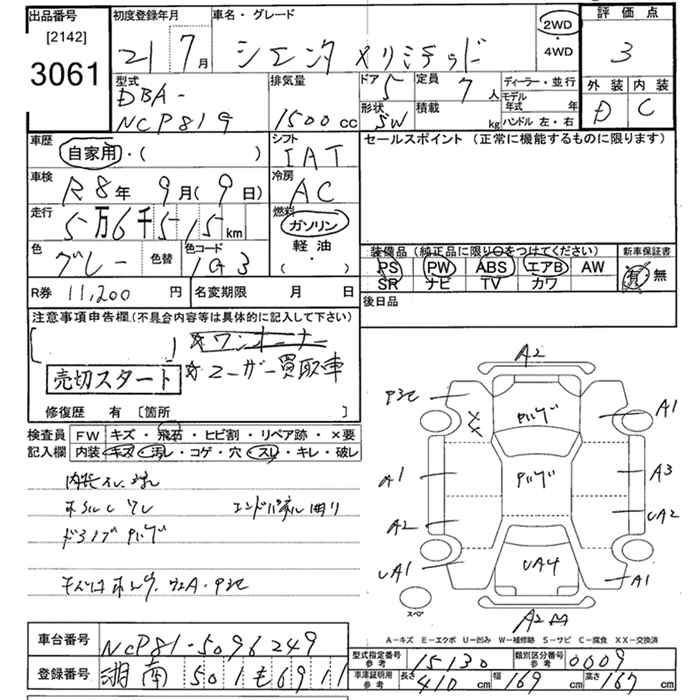 出品番号 初度登録年月 車名・グレード 2WD 評価点
[2142] 21 7月 シエンタ メリミテッド ・ 3
3061 4WD
型式 排気量 ドア 5 定員 7人 ディーラー・並行 外装 内装
DBA- モデル年式 年 D C
NCP81G 1500cc 形状 SW 積載 kg ハンドル 左・右
車歴 シフト セールスポイント (正常に機能するものに限ります)
自家用・( ) IAT
車検 R8年 9月(9日) 冷房 AC
走行 5万6千515km 燃料 ガソリン
軽油
( ・ )
色 グレー 色替 色コード 1G3
装備品 (純正品に限り○をつけてください) 新車保証書
PS PW ABS エアB AW 有 無
SR ナビ TV カワ
R券 11,200円 名変期限 月 日 後日品
注意事項申告欄 (不具合内容等は具体的に記入して下さい)
☆ワンオーナー
売切スタート ☆ユーザー買取車
修復歴 有 [箇所 ]
検査員 FW キズ・飛石・ヒビ割・リペア跡・×要
記入欄 内装 キズ・汚レ・コゲ・穴・スレ・キレ・破レ
A2
P3C A1
A1 A3
A2 UA2
UA1 UA4 A1
スペア
A2
A-キズ E-エクボ U-凹み W-補修跡 S-サビ C-腐食 XX-交換済
車台番号 NCP81-5096249
登録番号 湘南 501 も 6911
型式指定番号 参考 15130 類別区分番号 参考 0609
車庫証明用 参考 長さ 410cm 幅 169cm 高さ 167cm